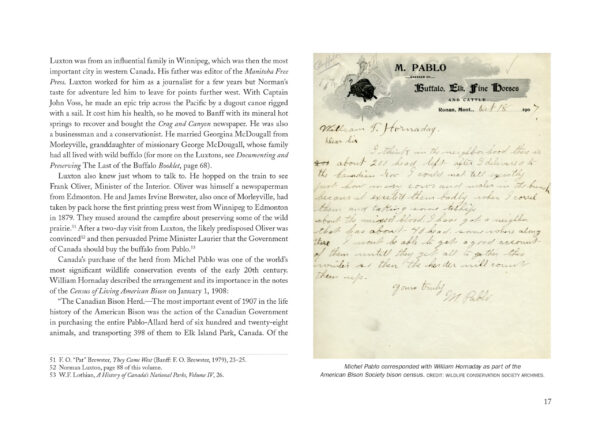 Luxton was from an influential family in Winnipeg, which was then the most
important city in western Canada. His father was editor of the Manitoba Free
Press. Luxton worked for him as a journalist for a few years but Norman's
taste for adventure led him to leave for points further west. With Captain
John Voss, he made an epic trip across the Pacific by a dugout canoe rigged
with a sail. It cost him his health, so he moved to Banff with its mineral hot
springs to recover and bought the Crag and Canyon newspaper. He was also
a businessman and a conservationist. He married Georgina McDougall from
Morleyville, granddaughter of missionary George McDougall, whose family
had all lived with wild buffalo (for more on the Luxtons, see Documenting and
Preserving The Last of the Buffalo Booklet, page 68).
Luxton also knew just whom to talk to. He hopped on the train to see
Frank Oliver, Minister of the Interior. Oliver was himself a newspaperman
from Edmonton. He and James Irvine Brewster, also once of Morleyville, had
taken by pack horse the first printing press west from Winnipeg to Edmonton
in 1879. They mused around the campfire about preserving some of the wild
prairie.51 After a two-day visit from Luxton, the likely predisposed Oliver was
convinced52 and then persuaded Prime Minister Laurier that the Government
of Canada should buy the buffalo from Pablo.53
Canada's purchase of the herd from Michel Pablo was one of the world's
most significant wildlife conservation events of the early 20th century.
William Hornaday described the arrangement and its importance in the notes
of the Census of Living American Bison on January 1, 1908:
"The Canadian Bison Herd.—The most important event of 1907 in the life
history of the American Bison was the action of the Canadian Government
in purchasing the entire Pablo-Allard herd of six hundred and twenty-eight
animals, and transporting 398 of them to Elk Island Park, Canada. Of the
51 F. O. "Pat" Brewster, They Came West (Banff: F. O. Brewster, 1979), 23–25.
52 Norman Luxton, page 88 of this volume.
53 W.F. Lothian, A History of Canada's National Parks, Volume IV, 26.
M. PABLO
Buffalo, Elk, Fine Horses
AND CATTLE
Ronan, Mont., Oct 18 1907
William T. Hornaday.
Dear Sir
I think in the neighborhood there is
about 200 head left after I delivered to
the Canadian Gov I could not tell exactly
just how many cows and males in the bunch
because it excited them badly when I corral
them and taking some to ship
about the mixed blood I have got a neighbor
that has about 45 head some where along
there I wont be able to get a good account
of them untill they get all to gather this
winter as then the herder will count
them up.
Yours truly
M Pablo.
Michel Pablo corresponded with William Hornaday as part of the
American Bison Society bison census. CREDIT: WILDLIFE CONSERVATION SOCIETY ARCHIVES.
17